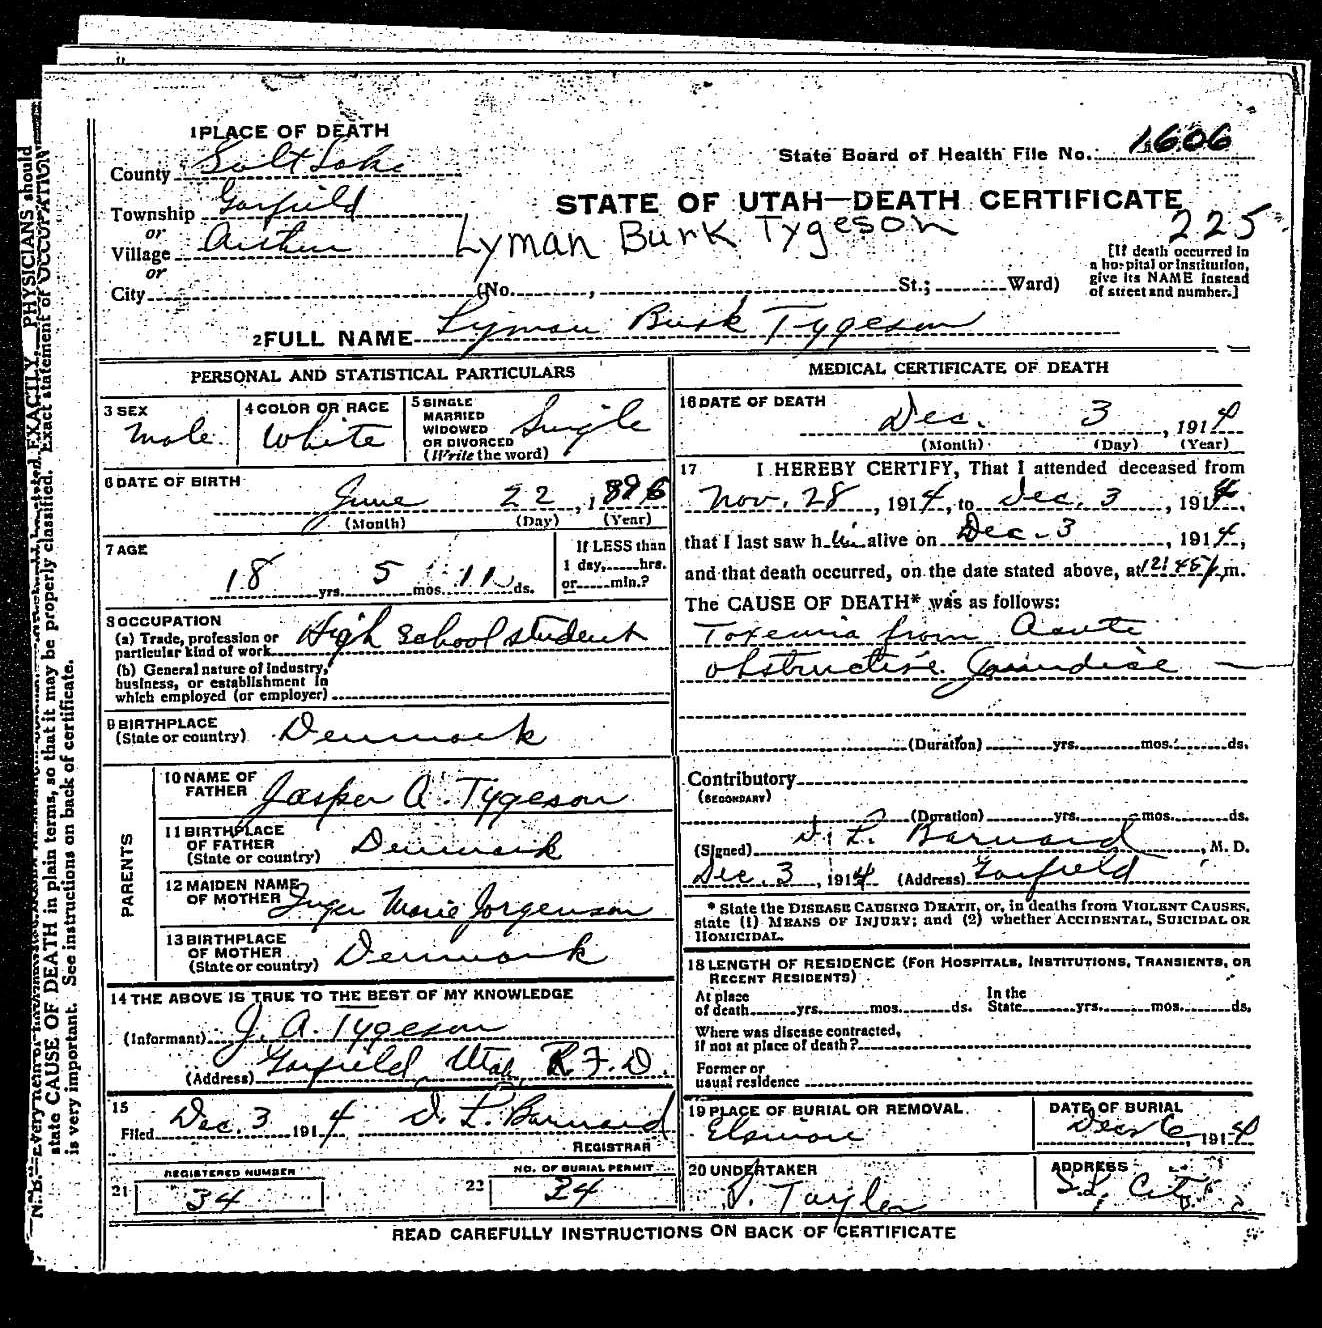 1 PLACE OF DEATH
County Salt Lake
State Board of Health File No. 1606
Township Garfield
STATE OF UTAH—DEATH CERTIFICATE
225
or
Village Arthur
Lyman Burk Tygeson
or
City (No. , St.; Ward)
[If death occurred in
a hospital or institution,
give its NAME instead
of street and number.]
2 FULL NAME Lyman Burk Tygeson
PERSONAL AND STATISTICAL PARTICULARS
3 SEX
Male
4 COLOR OR RACE
White
5 SINGLE
MARRIED
WIDOWED
OR DIVORCED
(Write the word)
Single
6 DATE OF BIRTH
June 22, 1896
(Month) (Day) (Year)
7 AGE
18 yrs. 5 mos. 11 ds.
If LESS than
1 day, hrs.
or min.?
8 OCCUPATION
(a) Trade, profession or
particular kind of work High School student
(b) General nature of industry,
business, or establishment in
which employed (or employer)
9 BIRTHPLACE
(State or country) Denmark
PARENTS
10 NAME OF
FATHER Jasper A. Tygeson
11 BIRTHPLACE
OF FATHER
(State or country) Denmark
12 MAIDEN NAME
OF MOTHER Inger Marie Jorgenson
13 BIRTHPLACE
OF MOTHER
(State or country) Denmark
14 THE ABOVE IS TRUE TO THE BEST OF MY KNOWLEDGE
(Informant) J. A. Tygeson
(Address) Garfield, Utah, R.F.D.
15
Filed Dec. 3 1914 D. L. Barnard
REGISTRAR
REGISTERED NUMBER
21 34
NO. OF BURIAL PERMIT
22 34
MEDICAL CERTIFICATE OF DEATH
16 DATE OF DEATH
Dec. 3, 1914
(Month) (Day) (Year)
17 I HEREBY CERTIFY, That I attended deceased from
Nov. 28, 1914, to Dec. 3, 1914,
that I last saw h im alive on Dec. 3, 1914,
and that death occurred, on the date stated above, at 12:45 p.m.
The CAUSE OF DEATH* was as follows:
Toxemia from Acute
obstructive Jaundice
(Duration) yrs. mos. ds.
Contributory
(SECONDARY)
(Duration) yrs. mos. ds.
(Signed) D. L. Barnard, M. D.
Dec. 3, 1914 (Address) Garfield
* State the DISEASE CAUSING DEATH, or, in deaths from VIOLENT CAUSES,
state (1) MEANS OF INJURY; and (2) whether ACCIDENTAL, SUICIDAL OR
HOMICIDAL.
18 LENGTH OF RESIDENCE (FOR HOSPITALS, INSTITUTIONS, TRANSIENTS, OR
RECENT RESIDENTS)
At place
of death yrs. mos. ds. In the
State yrs. mos. ds.
Where was disease contracted,
if not at place of death?
Former or
usual residence
19 PLACE OF BURIAL OR REMOVAL
Elsinore
DATE OF BURIAL
Dec 6, 1914
20 UNDERTAKER
S. Taylor
ADDRESS
S.L. City
READ CAREFULLY INSTRUCTIONS ON BACK OF CERTIFICATE
PHYSICIANS should
state CAUSE OF DEATH in plain terms, so that it may be properly classified. Exact statement of OCCUPATION
is very important. See instructions on back of certificate.